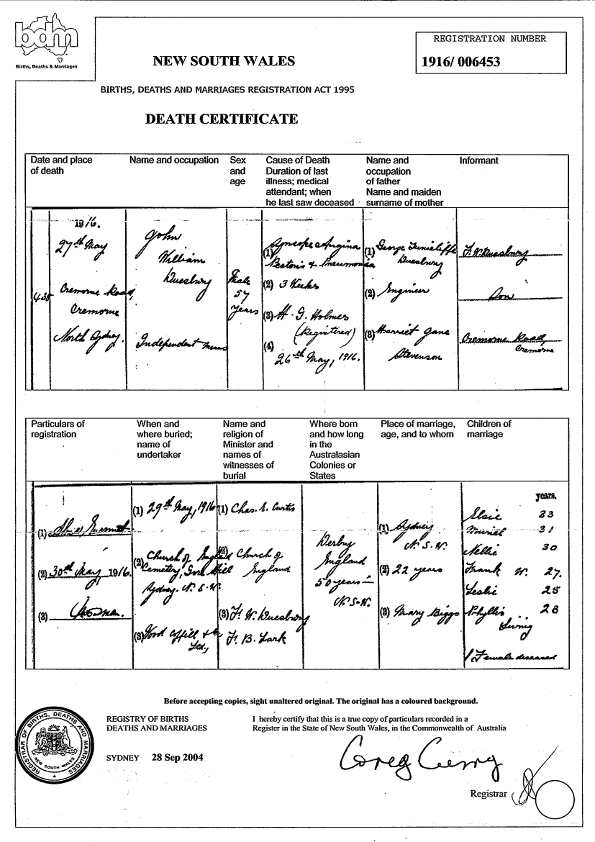 bdm
Births, Deaths & Marriages
REGISTRATION NUMBER
1916/ 006453
NEW SOUTH WALES
BIRTHS, DEATHS AND MARRIAGES REGISTRATION ACT 1995
DEATH CERTIFICATE
Date and place
of death
Name and occupation
Sex
and
age
Cause of Death
Duration of last
illness; medical
attendant; when
he last saw deceased
Name and
occupation
of father
Name and maiden
surname of mother
Informant
1916.
27th May
Cremorne Road,
Cremorne
North Sydney.
John
William
Duesbury
Independent means
Male
57
years
(1) Syncope Angina
Pectoris & Pneumonia
(2) 3 Weeks
(3) H. G. Holmes
(Registered)
(4) 26th May, 1916.
(1) George
Duesbury
(2) Engineer
(3) Harriet Jane
Stevenson
F. W. Duesbury
Son
Cremorne Road,
Cremorne
Particulars of
registration
When and
where buried;
name of
undertaker
Name and
religion of
Minister and
names of
witnesses of
burial
Where born
and how long
in the
Australasian
Colonies or
States
Place of marriage,
age, and to whom
Children of
marriage
(1)
(2) 30th May 1916.
(3)
(1) 29th May, 1916
(2) Church of England
Cemetery, Gore Hill
Sydney. N.S.W.
(3) Wood Coffill & Co
Ltd,
(1) Chas. E. Curtis
(2) Church of
England
(3) F. W. Duesbury
F. B. Lark
Derby
England
50 years
N.S.W.
(1) Sydney
N.S.W.
(2) 22 years
(3) Mary Biggs
years.
Elsie 33
Muriel 31
Nellie 30
Frank W. 27.
Leslie 25
Phyllis 28
Living
1 Female deceased
Before accepting copies, sight unaltered original. The original has a coloured background.
REGISTRY OF BIRTHS
DEATHS AND MARRIAGES
SYDNEY 28 Sep 2004
I hereby certify that this is a true copy of particulars recorded in a
Register in the State of New South Wales, in the Commonwealth of Australia
Registrar
REGISTRAR OF BIRTHS, DEATHS AND MARRIAGES
NEW SOUTH WALES